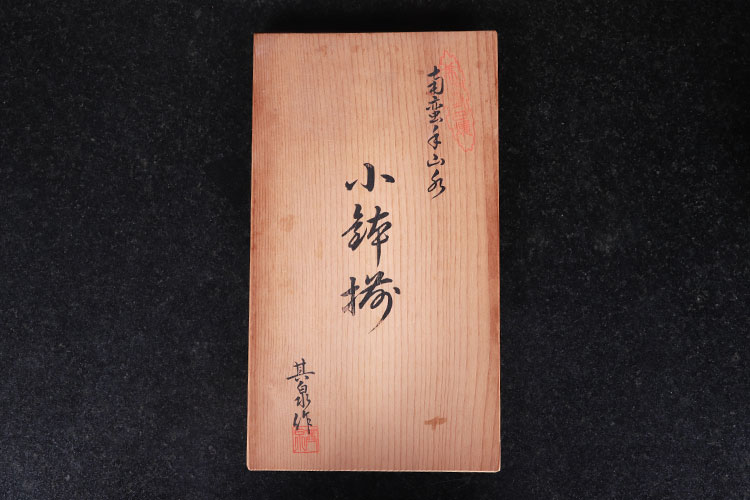 南蛮手山水
小鉢揃
其泉作